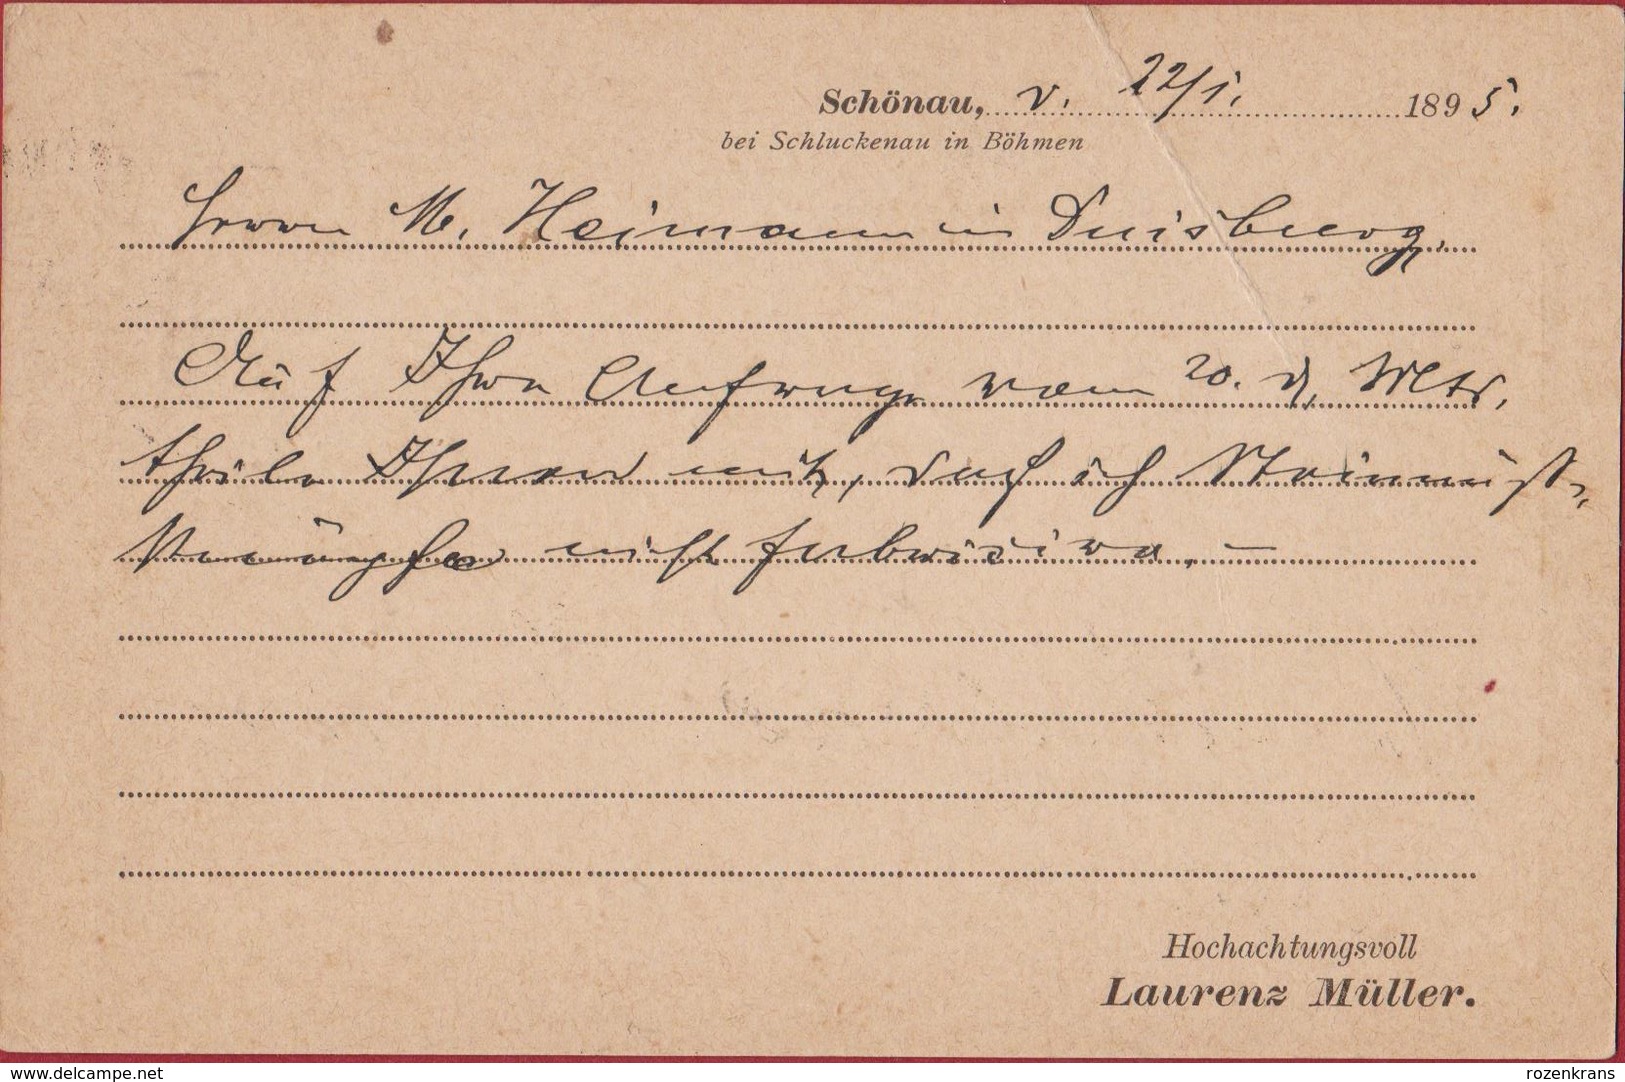 Schönau, v. 22/1. 1895.
bei Schluckenau in Böhmen
Herrn M. Heimann in Duisburg.
Auf Ihre Anfrage vom 20. d. Mts.
theile Ihnen mit, daß ich Steinnuß-
Knöpfe nicht fabriziere. –
Hochachtungsvoll
Laurenz Müller.
www.delcampe.net
rozenkrans